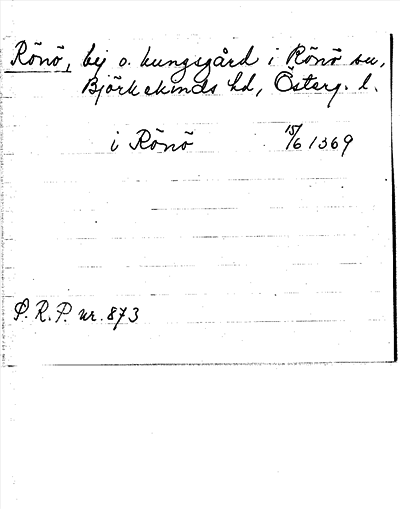 Rönö, by o. kungsgård i Rönö sn,
Björkekinds hd, Österg. l.
i Rönö 15/6 1369
S.R.P. nr. 873